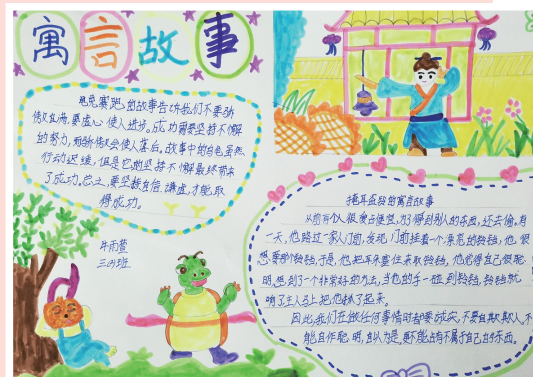 寓言故事
龟兔赛跑的故事告诉我们不要骄
傲自满,要虚心使人进步。成功需要坚持不懈
的努力,而骄傲会使人落后。故事中的乌龟虽然
行动迟缓,但是它的坚持不懈最终带来
了成功。总之,要坚持自信、谦虚,才能取
得成功。
三(4)班
掩耳盗铃的寓言故事
从前有个人,很爱占便宜,为了得到别人的东西,还去偷。有
一天,他路过一家人门前,发现门前挂着一个漂亮的铃铛,他很
想要那个铃铛,于是,他把耳朵塞住来取铃铛,他觉得自己很聪
明,想到了一个非常好的办法,当他的手一碰到铃铛,铃铛就
响了主人马上把他抓了起来。
因此我们在做任何事情时都要诚实,不要自欺欺人,不
能自作聪明,自以为是,更不能占有不属于自己的东西。